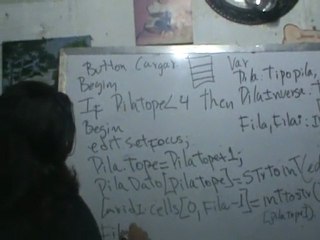 Button Cargar
Begin
If Pila.tope < 4 then
Begin
edit.setfocus;
Pila.Tope=Pila.tope+1;
Pila.Dato[Pila.tope]=STrtoint(
cells[0, Fila-1]=inttostr(
Var
Pila: Tipopila,
PilaInversa:
Fila, Filai: